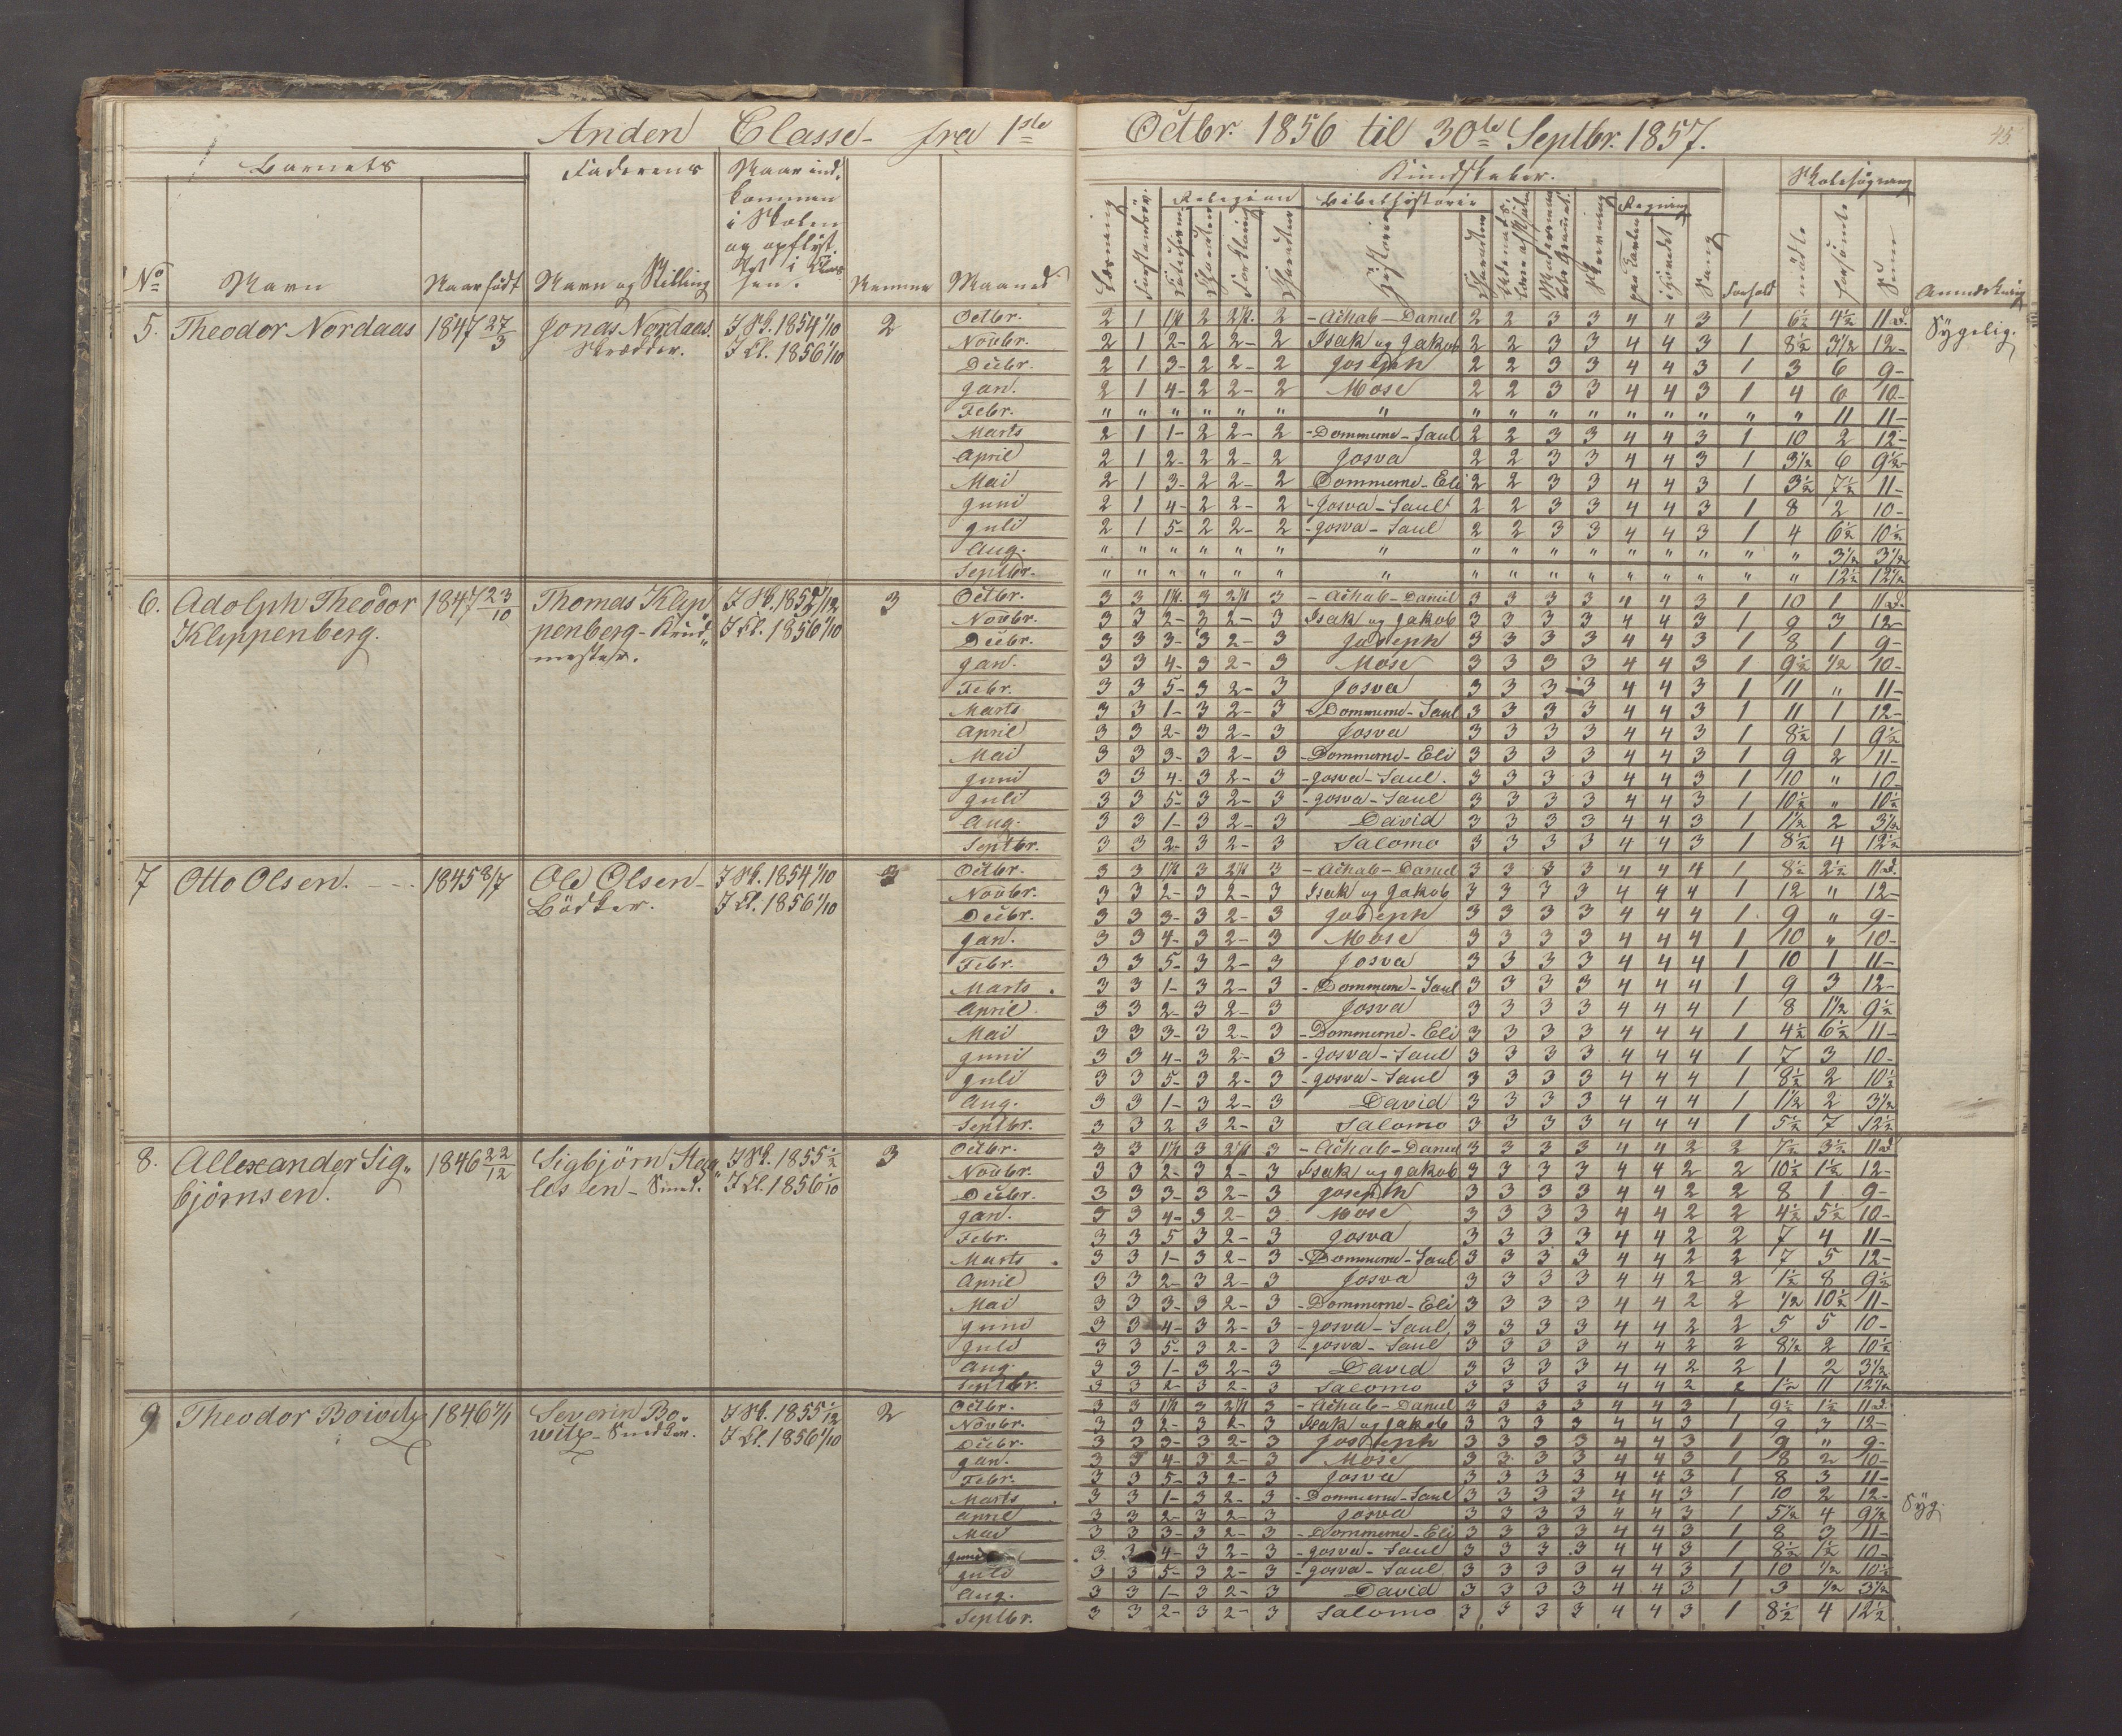 Anden Classe - fra 1ste Octbr. 1856 til 30te Septbr. 1857.
45.
Barnets
Faderens
Naar ind-
kommen
i Skolen
og opflyt-
tet i Clas-
sen.
No
Navn
Naar født
Navn og Stilling
Nemme
Maaned
Kundskaber.
Religion
Bibelhistorie
Regning
Sang
Forhold
Skolesøgning
mødte
forsømte
Sum
Anmærkning
5. Theodor Nordaas 1847 27/3 Jonas Nordaas. I Sk. 1854 1/10 2
Skrædder. I Cl. 1856 1/10
Octbr. 2 1 1ste 2 2det 2 - Achab - Daniel 2 2 3 3 4 4 3 1 6½ 4½ 11 D. Sygelig.
Novbr. 2 1 2- 2 2- 2 Isak og Jakob 2 2 3 3 4 4 3 1 8½ 3½ 12-
Decbr. 2 1 3- 2 2- 2 Joseph 2 2 3 3 4 4 3 1 3 6 9-
Jan. 2 1 4- 2 2- 2 Mose 2 2 3 3 4 4 3 1 4 6 10-
Febr. " " " " " " " " " " " " " " " " 11 11-
Marts 2 1 1- 2 2- 2 - Dommerne - Saul 2 2 3 3 4 4 3 1 10 2 12-
April 2 1 2- 2 2- 2 Josva 2 2 3 3 4 4 3 1 3½ 6 9½-
Mai 2 1 3- 2 2- 2 Dommerne - Eli 2 2 3 3 4 4 3 1 3½ 7½ 11-
Juni 2 1 4- 2 2- 2 - Josva - Saul 2 2 3 3 4 4 3 1 8 2 10-
Juli 2 1 5- 2 2- 2 - Josva - Saul 2 2 3 3 4 4 3 1 4 6½ 10½
Aug. " " " " " " " " " " " " " " " " 3½ 3½
Septbr. " " " " " " " " " " " " " " " " 12½ 12½
6. Adolph Theodor 1847 23/10 Thomas Klip I Sk. 1853 1/12 3
Klippenberg. penberg - Rund" I Cl. 1856 1/10
mester.
Octbr. 3 3 1ste 3 2det 3 - Achab - Daniel 3 3 3 3 4 4 3 1 10 1 11 D.
Novbr. 3 3 2- 3 2- 3 Isak og Jakob 3 3 3 3 4 4 3 1 9 3 12-
Decbr. 3 3 3- 3 2- 3 Joseph 3 3 3 3 4 4 3 1 8 1 9-
Jan. 3 3 4- 3 2- 3 Mose 3 3 3 3 4 4 3 1 9½ ½ 10-
Febr. 3 3 5- 3 2- 3 Josva 3 3 3 3 4 4 3 1 11 " 11-
Marts 3 3 1- 3 2- 3 - Dommerne - Saul 3 3 3 3 4 4 3 1 11 1 12-
April 3 3 2- 3 2- 3 Josva 3 3 3 3 4 4 3 1 8½ 1 9½
Mai 3 3 3- 3 2- 3 - Dommerne - Eli 3 3 3 3 4 4 3 1 9 2 11-
Juni 3 3 4- 3 2- 3 - Josva - Saul. 3 3 3 3 4 4 3 1 10 " 10
Juli 3 3 5- 3 2- 3 - Josva - Saul 3 3 3 3 4 4 3 1 10½ " 10½
Aug. 3 3 1- 3 2- 3 David 3 3 3 3 4 4 3 1 1½ 2 3½
Septbr. 3 3 2- 3 2- 3 Salomo 3 3 3 3 4 4 3 1 8½ 4 12½
7 Otto Olsen. 1845 8/7 Ole Olsen - I Sk. 1854 1/10 3
Bödker. I Cl. 1856 1/10
Octbr. 3 3 1ste 3 2det 3 - Achab - Daniel 3 3 3 3 4 4 4 1 8½ 2½ 11 D.
Novbr. 3 3 2- 3 2- 3 Isak og Jakob 3 3 3 3 4 4 4 1 12 " 12-
Decbr. 3 3 3- 3 2- 3 Joseph 3 3 3 3 4 4 4 1 9 " 9-
Jan. 3 3 4- 3 2- 3 Mose 3 3 3 3 4 4 4 1 10 " 10-
Febr. 3 3 5- 3 2- 3 Josva 3 3 3 3 4 4 4 1 10 1 11-
Marts 3 3 1- 3 2- 3 - Dommerne - Saul 3 3 3 3 4 4 4 1 9 3 12-
April 3 3 2- 3 2- 3 Josva 3 3 3 3 4 4 4 1 8 1½ 9½
Mai 3 3 3- 3 2- 3 - Dommerne - Eli 3 3 3 3 4 4 4 1 4½ 6½ 11-
Juni 3 3 4- 3 2- 3 - Josva - Saul 3 3 3 3 4 4 4 1 7 3 10-
Juli 3 3 5- 3 2- 3 - Josva - Saul 3 3 3 3 4 4 4 1 8½ 2 10½
Aug. 3 3 1- 3 2- 3 David 3 3 3 3 4 4 4 1 1½ 2 3½
Septbr. 3 3 2 3 2- 3 Salomo 3 3 3 3 4 4 4 1 5½ 7 12½
8. Allexander Sig" 1846 22/12 Sigbjörn I Sk. 1855 1/2 3
björnsen. - Smed. I Cl. 1856 1/10
Octbr. 3 3 1ste 3 2det 3 - Achab - Daniel 3 3 3 3 4 4 2 2 7½ 3½ 11 D
Novbr. 3 3 2- 3 2- 3 Isak og Jakob 3 3 3 3 4 4 2 2 10½ 1½ 12-
Decbr. 3 3 3- 3 2- 3 Joseph 3 3 3 3 4 4 2 2 8 1 9-
Jan. 3 3 4- 3 2- 3 Mose 3 3 3 3 4 4 2 2 4½ 5½ 10-
Febr. 3 3 5 3 2- 3 Josva 3 3 3 3 4 4 2 2 7 4 11-
Marts 3 3 1- 3 2- 3 - Dommerne - Saul 3 3 3 3 4 4 2 2 7 5 12-
April 3 3 2- 3 2- 3 Josva 3 3 3 3 4 4 2 2 1½ 8 9½
Mai 3 3 3- 3 2- 3 - Dommerne - Eli 3 3 3 3 4 4 2 2 ½ 10½ 11-
Juni 3 3 4- 3 2- 3 - Josva - Saul 3 3 3 3 4 4 2 2 5 5 10-
Juli 3 3 5- 3 2- 3 - Josva - Saul 3 3 3 3 4 4 2 2 8½ 2 10½
Aug. 3 3 1- 3 2- 3 David 3 3 3 3 4 4 2 2 1 2 3½
Septbr. 3 3 2- 3 2- 3 Salomo 3 3 3 3 4 4 2 2 1½ 11 12½
9 Theodor Boiwitz 1846 Severin Bo- I Sk. 1855 1/12 2
witz - I Cl. 1856 1/10
Octbr. 3 3 1ste 3 2det 3 - Achab - Daniel 3 3 3 3 4 4 3 1 9½ 1½ 11 D.
Novbr. 3 3 2- 3 2- 3 Isak og Jakob 3 3 3 3 4 4 3 1 9 3 12-
Decbr. 3 3 3- 3 2- 3 Joseph 3 3 3 3 4 4 3 1 9 " 9-
Jan. 3 3 4- 3 2- 3 Mose 3 3 3 3 4 4 3 1 8 2 10-
Febr. 3 3 5- 3 2- 3 Josva 3 3 3 3 4 4 3 1 8 3 11-
Marts 3 3 1- 3 2- 3 - Dommerne - Saul 3 3 3 3 4 4 3 1 10 2 12-
April 3 3 2- 3 2- 3 Josva 3 3 3 3 4 4 3 1 5½ 4 9½ Syg.
Mai 3 3 3- 3 2- 3 - Dommerne - Eli 3 3 3 3 4 4 3 1 8 3 11-
Juni 3 3 4- 3 2- 3 - Josva - Saul 3 3 3 3 4 4 3 1 8½ 1½ 10-
Juli 3 3 5- 3 2- 3 - Josva - Saul 3 3 3 3 4 4 3 1 10 ½ 10½
Aug. 3 3 1- 3 2- 3 David 3 3 3 3 4 4 3 1 3 ½ 3½
Septbr. 3 3 2- 3 2- 3 Salomo 3 3 3 3 4 4 3 1 8½ 4 12½